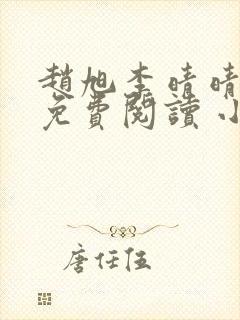 趙旭李晴晴
免費閱讀小
唐任伍